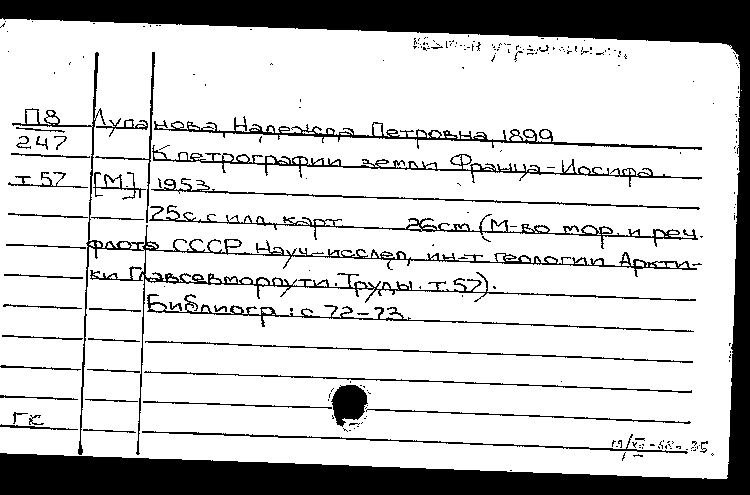 взамен утраченного
П8 Лупанова, Надежда Петровна, 1899
247 К петрографии земли Франца-Иосифа.
т 57 [М], 1953.
75с. с илл, карт 26см (М-во мор. и реч.
флота СССР. Науч-исслед, ин-т геологии Аркти-
ки Главсевморпути. Труды. т. 57).
Библиогр: с 72-73.
ГК